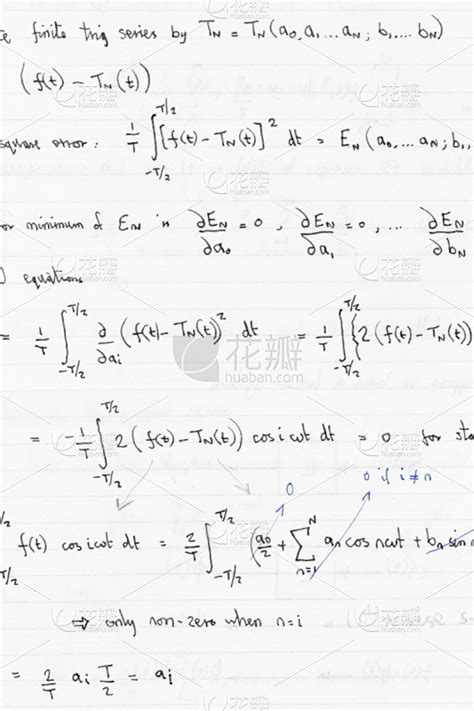 finite trig series by T_N = T_N(a_0, a_1 ... a_N; b_1, ... b_N)
(f(t) - T_N(t))
square error: 1/T ∫_{-T/2}^{T/2} [f(t) - T_N(t)]^2 dt = E_N(a_0, ... a_N; b_1,
or minimum of E_N is ∂E_N/∂a_0 = 0, ∂E_N/∂a_1 = 0, ... ∂E_N/∂b_N
) equations
= 1/T ∫_{-T/2}^{T/2} ∂/∂a_i (f(t) - T_N(t))^2 dt = 1/T ∫_{-T/2}^{T/2} {2(f(t) - T_N(t))
花瓣
huaban.com
= -1/T ∫_{-T/2}^{T/2} 2(f(t) - T_N(t)) cos iωt dt = 0 for
0
0 if i≠n
T/2
-T/2
f(t) cos iωt dt = 2/T ∫_{-T/2}^{T/2} (a_0/2 + Σ_{n=1}^{N} a_n cos nωt + b_n sin n
⇒ only non-zero when n=i
= 2/T a_i T/2 = a_i